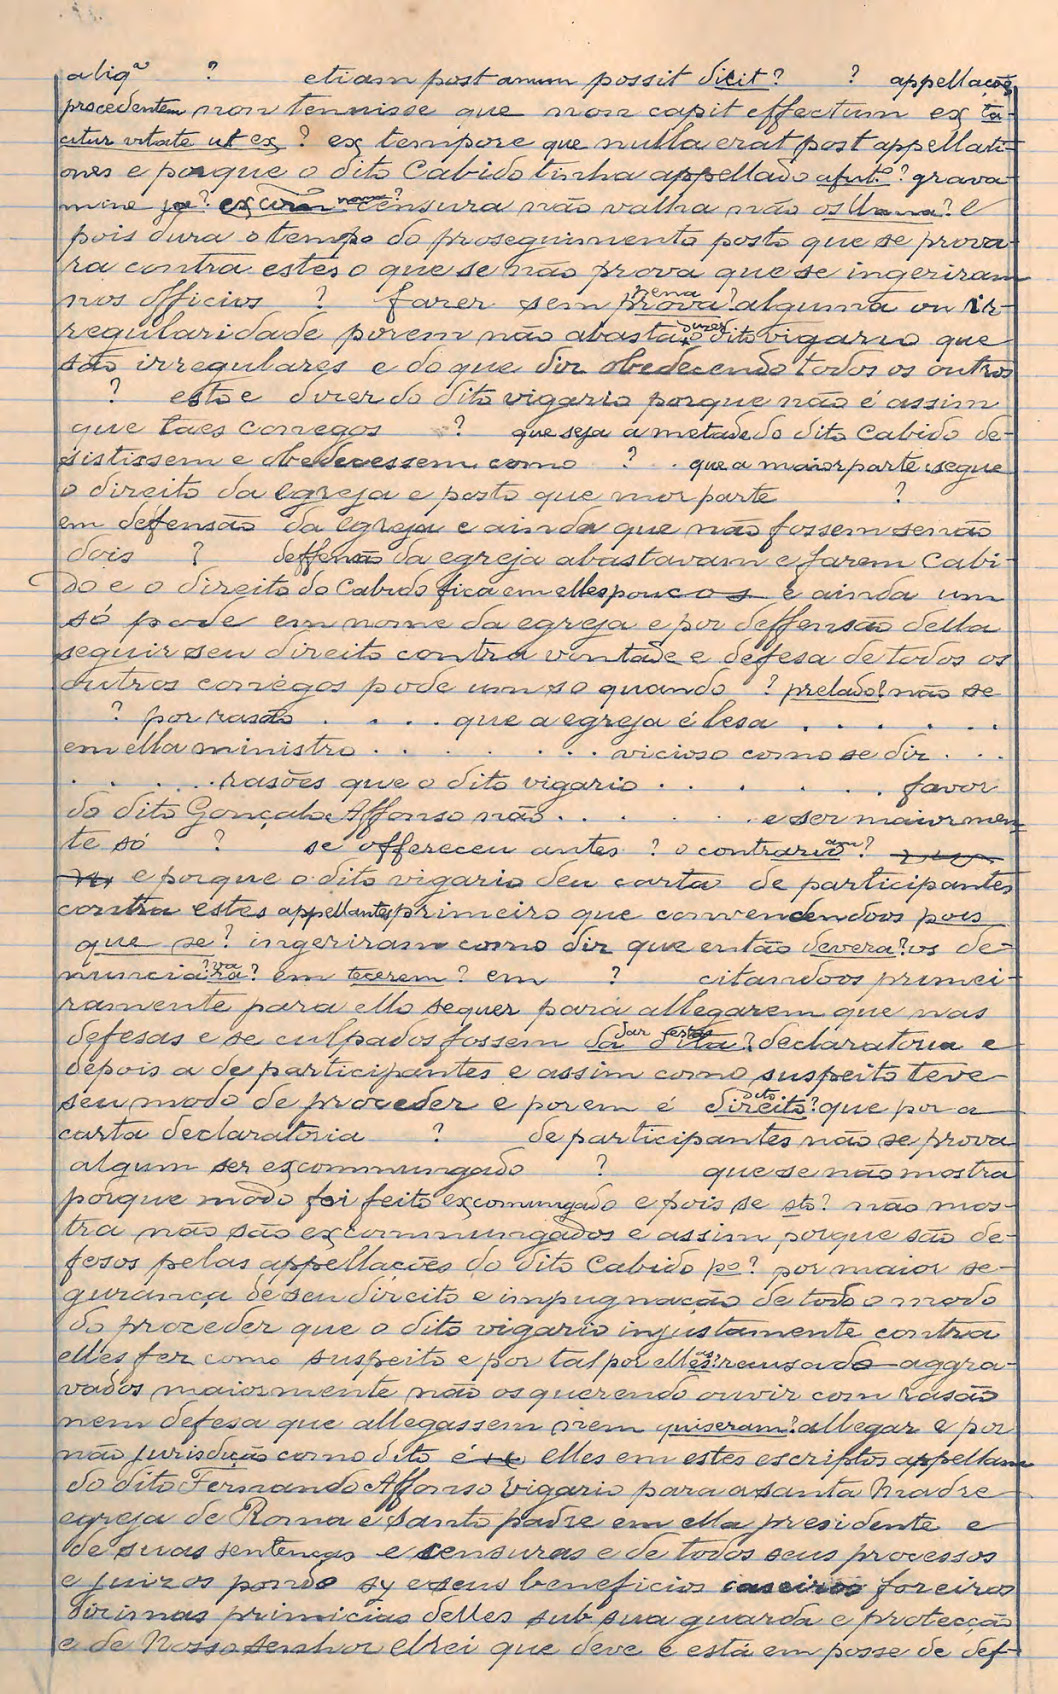 aliqᵃ ? etiam post anum possit dicit? ? appellações
procedentem non tennisse que non capit effectum ex ta-
citur vitate ut ex ? ex tempore que nulla erat post appellati-
ones e porque o dito Cabido tinha appellado afut.º? grava
mine ja? censura não valha não os ? e
pois dura o tempo do proseguimento posto que se prova-
ra contra estes o que se não prova que se ingeriram
nos officios ? fazer sem prova pena? alguma ou ir-
regularidade porem não abasta o dizer dito vigario que
são irregulares e do que diz obedecendo todos os outros
? esto e dizer do dito vigario porque não é assim
que taes conegos ? que seja a metade do dito Cabido de-
sistissem e obedecessem como ? que a maior parte segue
o direito da egreja e posto que mor parte ?
em defensão da egreja e ainda que não fossem senão
dois ? deffensão da egreja abastavam e fazem Cabi-
do e o direito do Cabido fica em elles poucos e ainda um
só pode em nome da egreja e por deffensão della
seguir seu direito contra vontade e defesa de todos os
outros conegos pode um so quando ? prelado? não se
? por rasão . . . . que a egreja é lesa . . . . . .
em ella ministro . . . . . . . vicioso como se diz . . .
. . . . . rasões que o dito vigario . . . . . . . favor
do dito Gonçalo Affonso não . . . . . . e ser maiormen
te só ? se offereceu antes ? o contrario ?
e porque o dito vigario deu carta de participantes
contra estes appellantes primeiro que convencendoos pois
que se? ingeriram como diz que então devera? os de-
nunciara? va? em tecerem? em ? citandoos primei-
ramente para ello sequer para allegarem que nas
defesas e se culpados fossem da dita dar estas? declaratoria e
depois a de participantes e assim como suspeito teve
seu modo de proceder e porem é direito dito? que por a
carta declaratoria ? de participantes não se prova
algum ser excommungado ? que se não mostra
porque modo foi feito excomungado e pois se sto? não mos-
tra não são excommungados e assim porque são de-
fesos pelas appellações do dito Cabido po? por maior se-
gurança de seu direito e impugnação de todo o modo
do proceder que o dito vigario injustamente contra
elles fez como suspeito e por tal por elles as? recusado aggra-
vados maiormente não os querendo ouvir com rasão
nem defesa que allegassem nem quiseram? allegar e por
não jurisdição como dito é elles em estes escriptos appellam
do dito Fernando Affonso vigario para a santa Madre
egreja de Roma e santo padre em ella presidente e
de suas sentenças e censuras e de todos seus processos
e juizos pondo sy e seus beneficios caseiros foreiros
dizimas primicias delles sub sua guarda e protecção
e de Nosso senhor elrei que deve e está em posse de def-